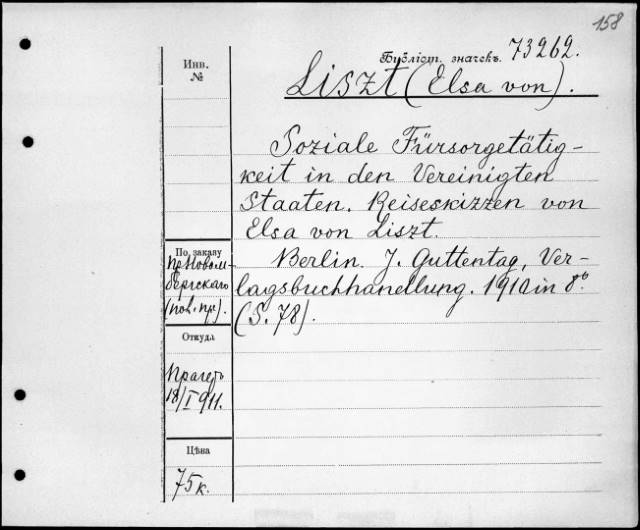 158
Библіот. значекъ. 73262.
Инв.
№
Liszt (Elsa von).
Soziale Fürsorgetätig-
keit in den Vereinigten
Staaten. Reiseskizzen von
Elsa von Liszt.
Berlin. J. Guttentag, Ver-
lagsbuchhandlung. 1910 in 8°
(S. 78).
По заказу
пр. Новом-
бергскаго
(пов. пр.).
Откуда
Прагеръ
18/I 911.
Цѣна
75 к.